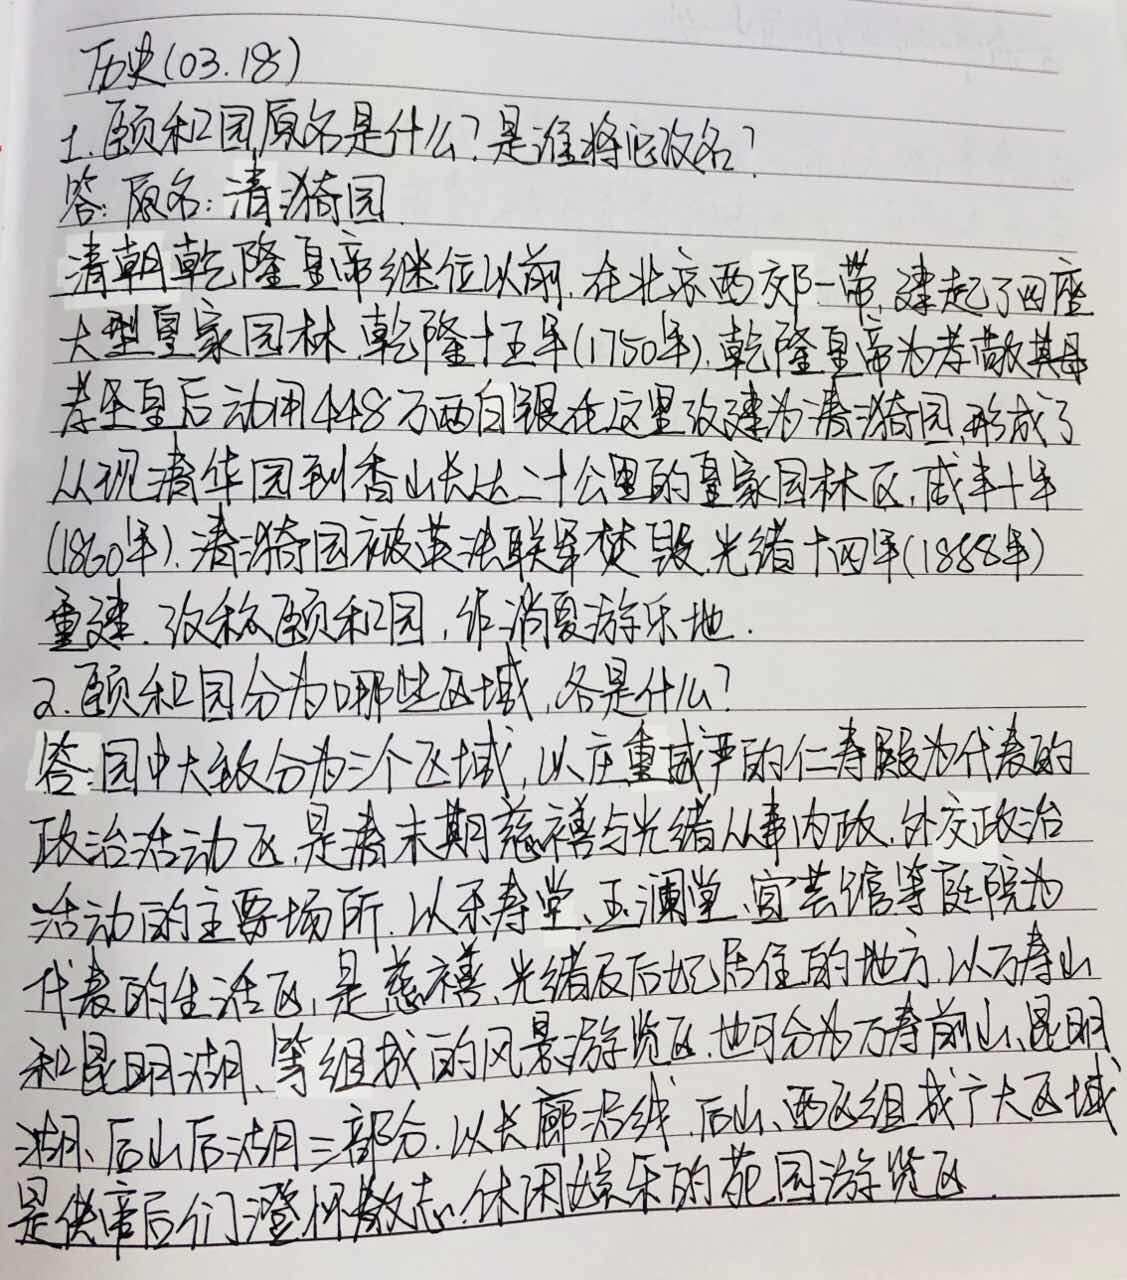 历史(03.18)
1.颐和园原名是什么?是谁将它改名?
答:原名:清漪园
清朝乾隆皇帝继位以前,在北京西郊一带,建起了四座
大型皇家园林.乾隆十五年(1750年),乾隆皇帝为孝敬其母
孝圣皇后动用448万两白银在这里改建为清漪园,形成了
从现清华园到香山长达二十公里的皇家园林区,咸丰十年
(1860年).清漪园被英法联军焚毁.光绪十四年(1888年)
重建.改称颐和园,作消夏游乐地.
2.颐和园分为哪些区域,各是什么?
答:园中大致分为三个区域,以庄重威严的仁寿殿为代表的
政治活动区,是清末期慈禧与光绪从事内政、外交政治
活动的主要场所.以乐寿堂、玉澜堂、宜芸馆等庭院为
代表的生活区,是慈禧、光绪及后妃居住的地方.以万寿山
和昆明湖、等组成的风景游览区.也可分为万寿前山、昆明
湖、后山后湖三部分.以长廊沿线、后山、西区组成广大区域
是供帝后们澄怀散志.休闲娱乐的苑园游览区.